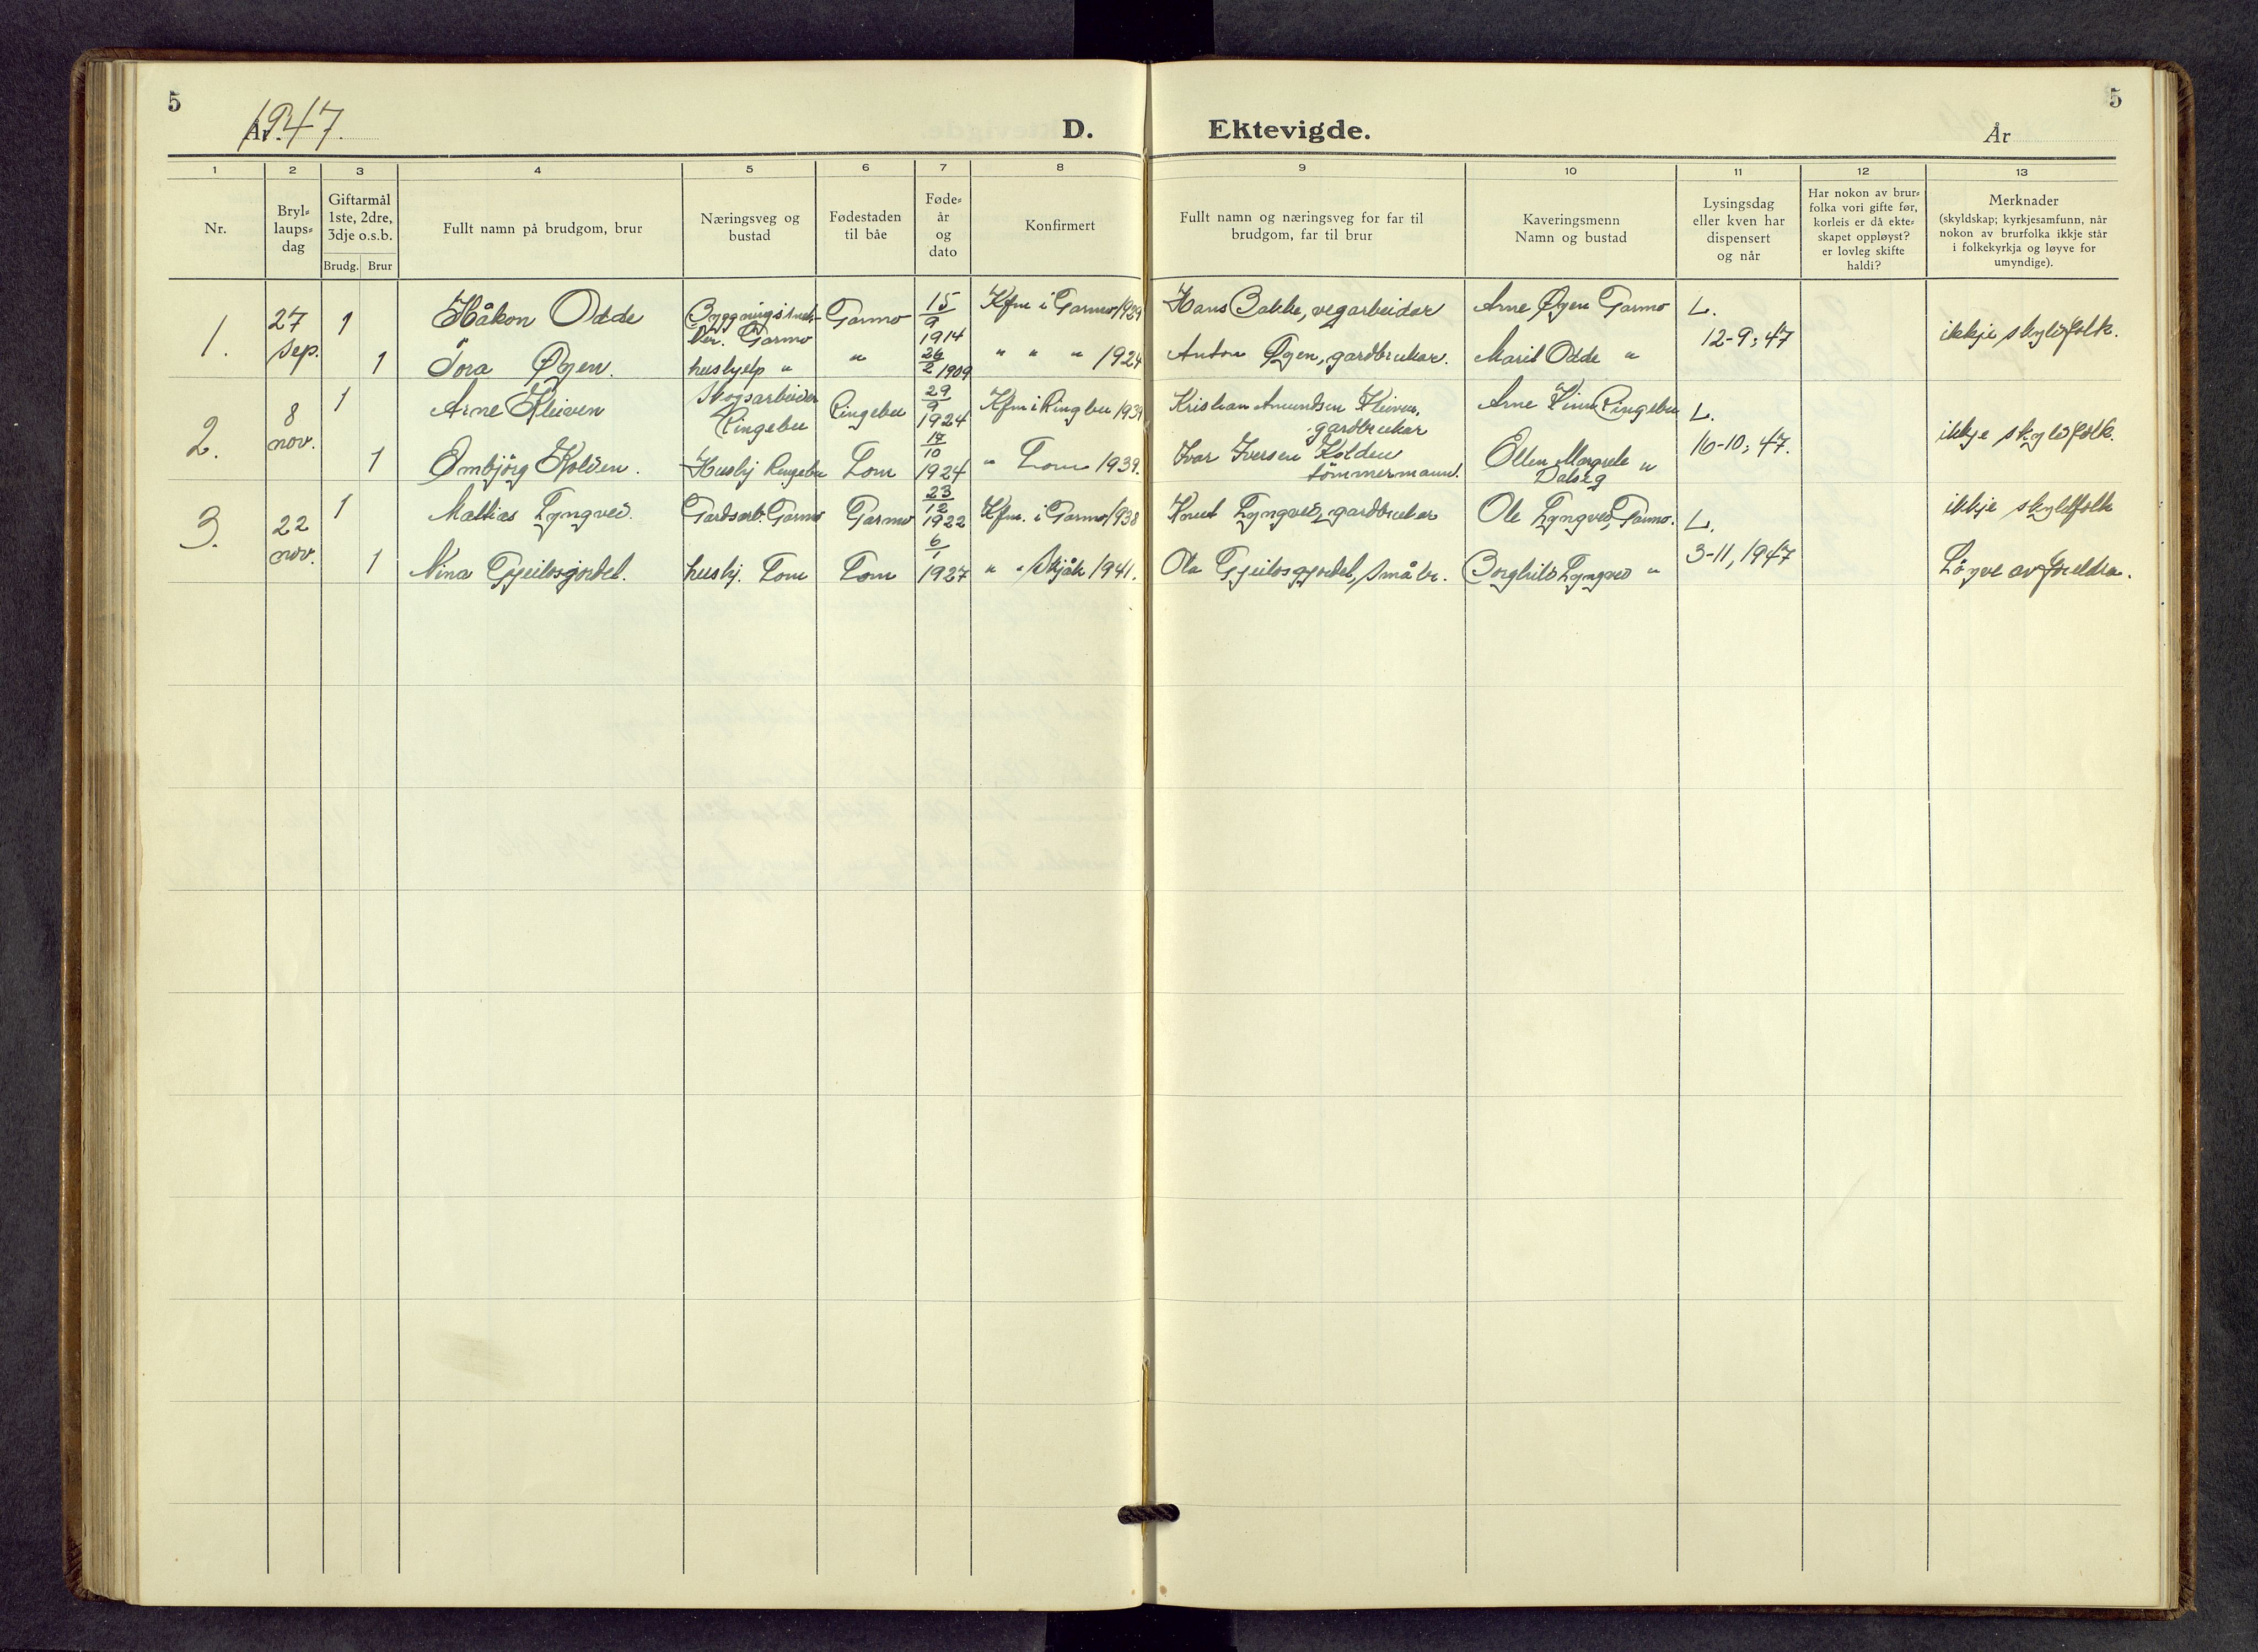 5
År 1947.
D.
Ektevigde.
År
5
1 2 3 4 5 6 7 8 9 10 11 12 13
Nr.
Bryl=
laups=
dag
Giftarmål
1ste, 2dre,
3dje o.s.b.
Brudg. Brur
Fullt namn på brudgom, brur
Næringsveg og
bustad
Fødestaden
til båe
Føde=
år
og
dato
Konfirmert
Fullt namn og næringsveg for far til
brudgom, far til brur
Kaveringsmenn
Namn og bustad
Lysingsdag
eller kven har
dispensert
og når
Har nokon av brur=
folka vori gifte før,
korleis er då ekte=
skapet oppløyst?
er lovleg skifte
haldi?
Merknader
(skyldskap; kyrkjesamfunn, når
nokon av brurfolka ikkje står
i folkekyrkja og løyve for
umyndige).
1. 27 sep. 1 Håkon Odde Garmo 15/9 1914 Kfm i Garmo 1929 Hans Bakke, vegarbeidar Arne Øyen Garmo L. 12-9; 47 ikkje skyldfolk.
1 Tora Øyen. hushjelp " " 26/2 1909 " " " 1924 Anton Øyen, gardbrukar. Marit Odde "
2. 8 nov. 1 Arne Kleiven Skogsarbeider Ringebu Ringebu 29/9 1924 Kfm i Ringbu 1939 Kristian Amundsen Kleiven, gardbrukar Arne Ringebu L. 16-10; 47. ikkje skyldfolk.
1 Ombjörg Kolden. Hushj Ringebu Lom 17/10 1924 " Lom 1939. Ivar Iversen Kolden tömmermann. Ellen Margrete Dalseg "
3. 22 nov. 1 Mattias Lyngved. Gardsarb. Garmo Garmo 23/12 1922 Kfm. i Garmo 1938 Knut Lyngved, gardbrukar Ole Lyngved, Garmo. L. 3-11, 1947 ikkje skyldfolk
1 Nina Gjeilosgjordet. hushj. Lom Lom 6/1 1927 " " Skjåk 1941. Ola Gjeilosgjordet, småbr. Borghild Lyngved " Løyve av foreldra.